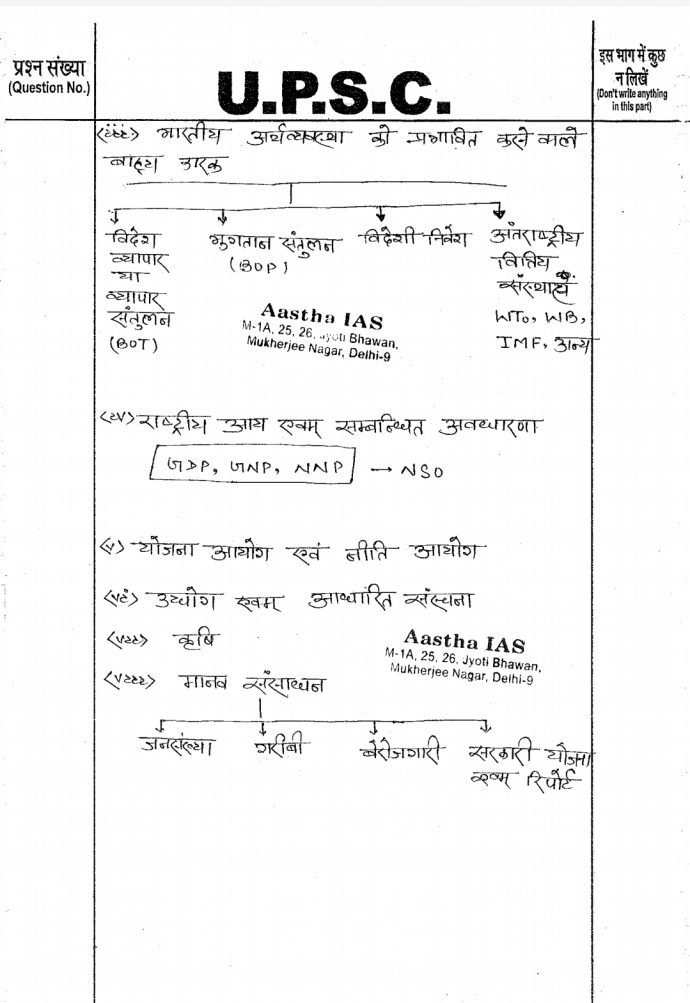 प्रश्न संख्या
(Question No.)
U.P.S.C.
इस भाग में कुछ
न लिखें
(Don't write anything
in this part)
<iii> भारतीय अर्थव्यवस्था को प्रभावित करने वाले
बाह्य कारक
विदेश
व्यापार
या
व्यापार
संतुलन
(BOT)
भुगतान संतुलन
(BOP)
विदेशी निवेश
अंतराष्ट्रीय
वित्तिय
संस्थाएँ
WTO, WB,
IMF, अन्य
Aastha IAS
M-1A, 25, 26, Jyoti Bhawan,
Mukherjee Nagar, Delhi-9
<iv> राष्ट्रीय आय एवम् सम्बन्धित अवधारणा
GDP, GNP, NNP → NSO
<v> योजना आयोग एवं नीति आयोग
<vi> उद्योग एवम् आधारित संरचना
<vii> कृषि
Aastha IAS
M-1A, 25, 26, Jyoti Bhawan,
Mukherjee Nagar, Delhi-9
<viii> मानव संसाधन
जनसंख्या
गरीबी
बेरोजगारी
सरकारी योजना
एवम् रिपोर्ट